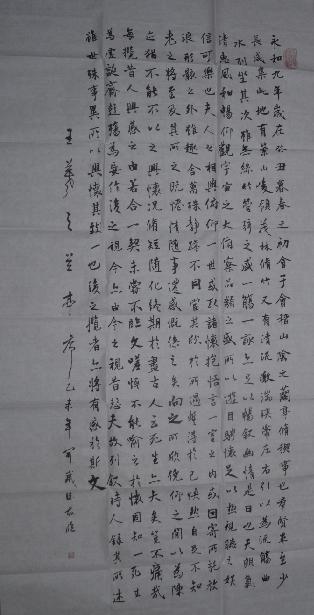 永和九年歲在癸丑暮春之初會于會稽山陰之蘭亭脩禊事也羣賢畢至少
長咸集此地有崇山峻領茂林脩竹又有清流激湍暎帶左右引以為流觴曲
水列坐其次雖無絲竹管弦之盛一觴一詠亦足以暢敘幽情是日也天朗氣
清惠風和暢仰觀宇宙之大俯察品類之盛所以遊目騁懷足以極視聽之娛
信可樂也夫人之相與俯仰一世或取諸懷抱悟言一室之內或因寄所託放
浪形骸之外雖趣舍萬殊靜躁不同當其欣於所遇暫得於己怏然自足不知
老之將至及其所之既惓情隨事遷感慨係之矣向之所欣俛仰之間以為陳
迹猶不能不以之興懷況脩短隨化終期於盡古人云死生亦大矣豈不痛哉
每攬昔人興感之由若合一契未嘗不臨文嗟悼不能喻之於懷固知一死生
為虛誕齊彭殤為妄作後之視今亦由今之視昔悲夫故列敘時人錄其所述
雖世殊事異所以興懷其致一也後之攬者亦將有感於斯文
王羲之蘭亭序己未年